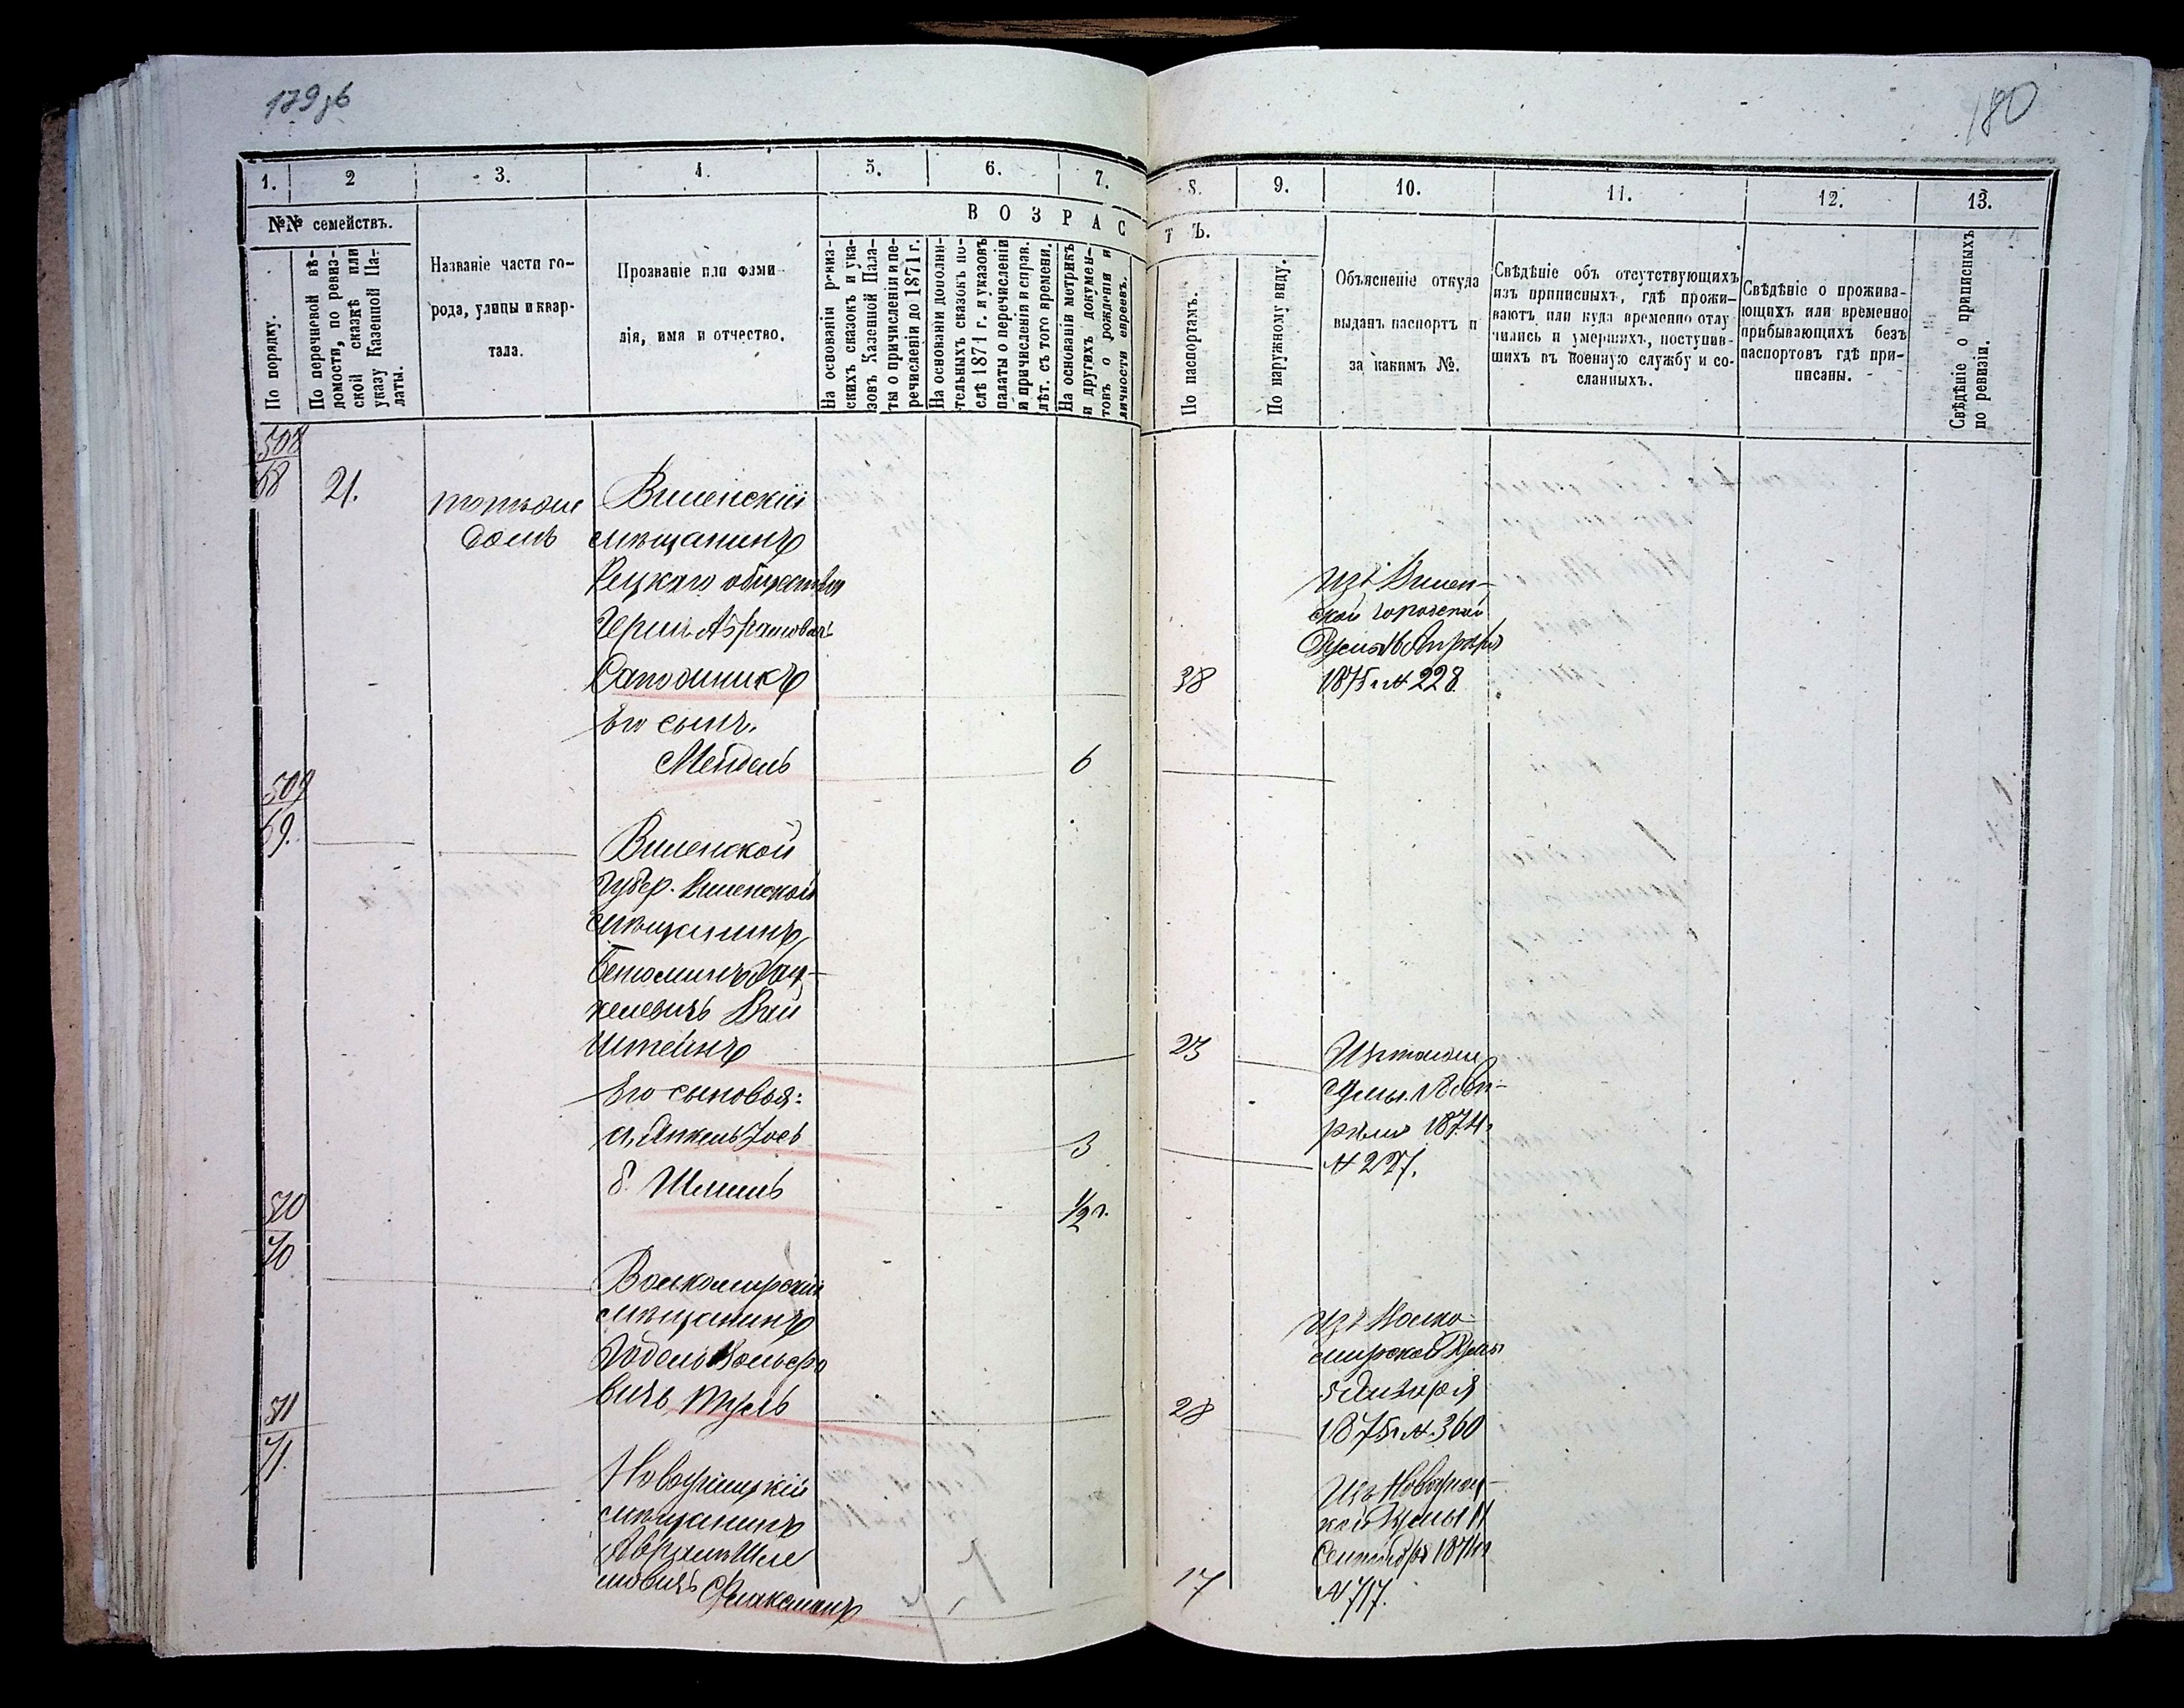 179об
180
1.
2
3.
4.
5.
6.
7.
8.
9.
10.
11.
12.
13.
№№ семействъ.
По порядку.
По перечневой вѣ-
домости, по ревиз-
ской сказкѣ или
указу Казенной Па-
латы.
Названіе части го-
рода, улицы и квар-
тала.
Прозваніе или фами-
лія, имя и отчество.
ВОЗРАС
ТЪ.
На основаніи ревиз-
скихъ сказокъ и ука-
зовъ Казенной Пала-
ты о причисленіи и пе-
речисленіи до 1871 г.
На основаніи дополни-
тельныхъ сказокъ по-
слѣ 1871 г. и указовъ
палаты о перечисленіи
и причисленіи и справ.
лѣт. съ того времени.
На основаніи метрикъ
и другихъ докумен-
товъ о рожденіи и
личности евреевъ.
По паспортамъ.
По наружному виду.
Объясненіе откуда
выданъ паспортъ и
за какимъ №.
Свѣдѣніе объ отсутствующихъ
изъ приписныхъ, гдѣ прожи-
ваютъ или куда временно отлу
чились и умершихъ, поступив-
шихъ въ военную службу и со-
сланныхъ.
Свѣдѣніе о прожива-
ющихъ или временно
прибывающихъ безъ
паспортовъ гдѣ при-
писаны.
Свѣдѣніе о приписныхъ
по ревизіи.
508
68
21.
домѣ
Виленскій
мѣщанинъ
общества
Абрамовичъ
Сапожникъ
38
Изъ Вилен-
ской городской
Думы 16
1875 г № 228
Его сынъ.
Мендель
6
509
69.
Виленской
Губер. Виленской
мѣщанинъ
келевичъ Вай
штейнъ
23
Думы 18
1874 г
Его сыновья:
а, Янкель Іось
3
б. Шмуль
1/2 г.
510
70
Волкомирскій
мѣщанинъ
вичъ
28
Изъ Волко-
мирской Думы
5 Января
1875 г № 360
511
71.
мѣщанинъ
Абрамъ Шле
мовичъ Флаксманъ
17
Думы 11
Сентября 1874 г
№ 717.